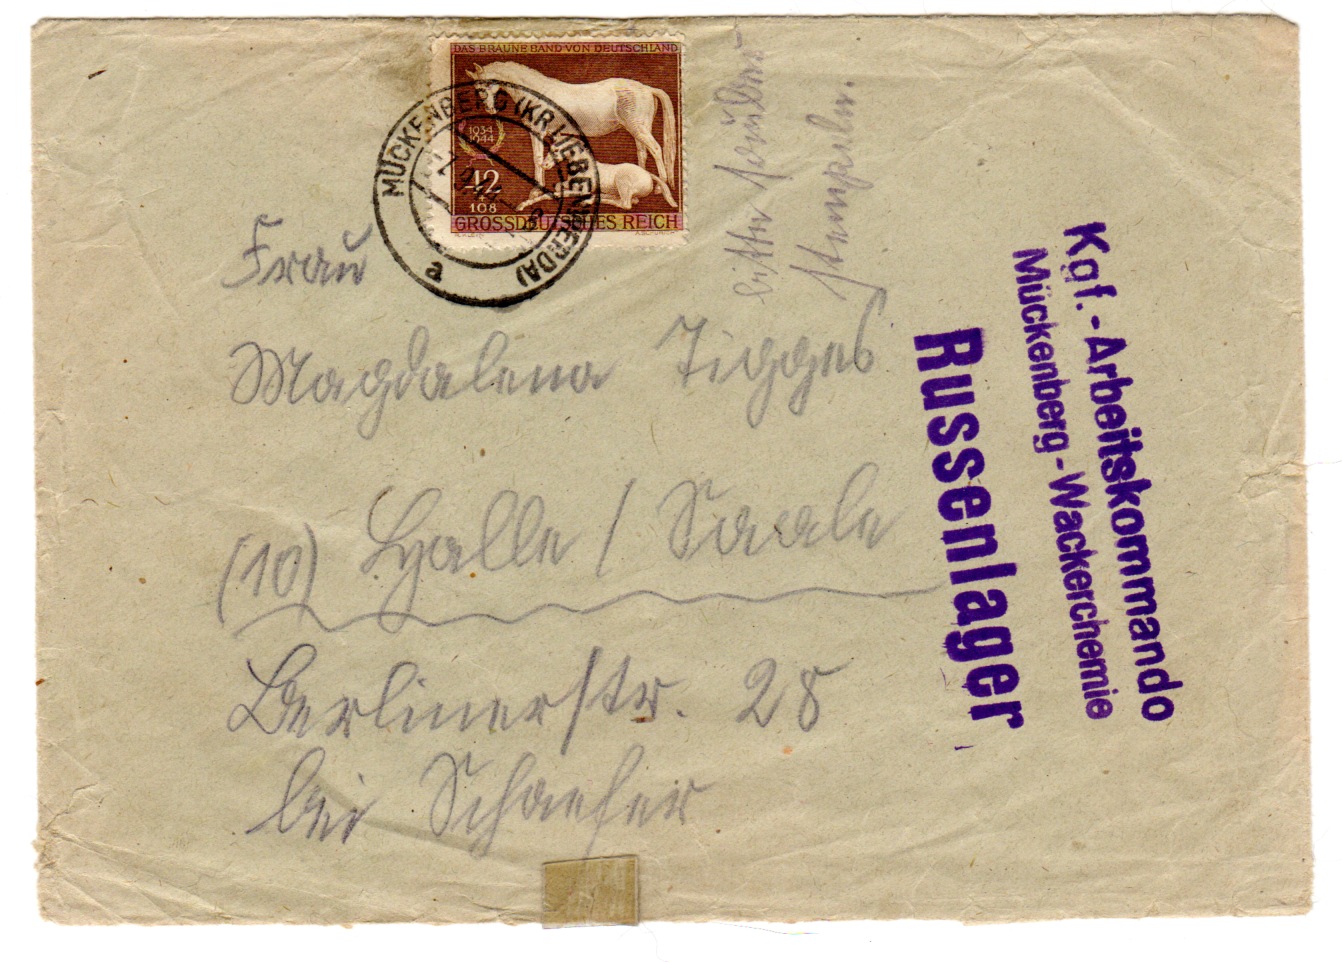 DAS BRAUNE BAND VON DEUTSCHLAND
1934
1944
42
+
108
GROSSDEUTSCHES REICH
MÜCKENBERG (KR. LIEBENWERDA)
a
bitte sauber
stempeln.
Frau
Magdalena Tigges
(10) Halle / Saale
Berlinerstr. 28
bei Schaefer
Kgf.-Arbeitskommando
Mückenberg-Wackerchemie
Russenlager